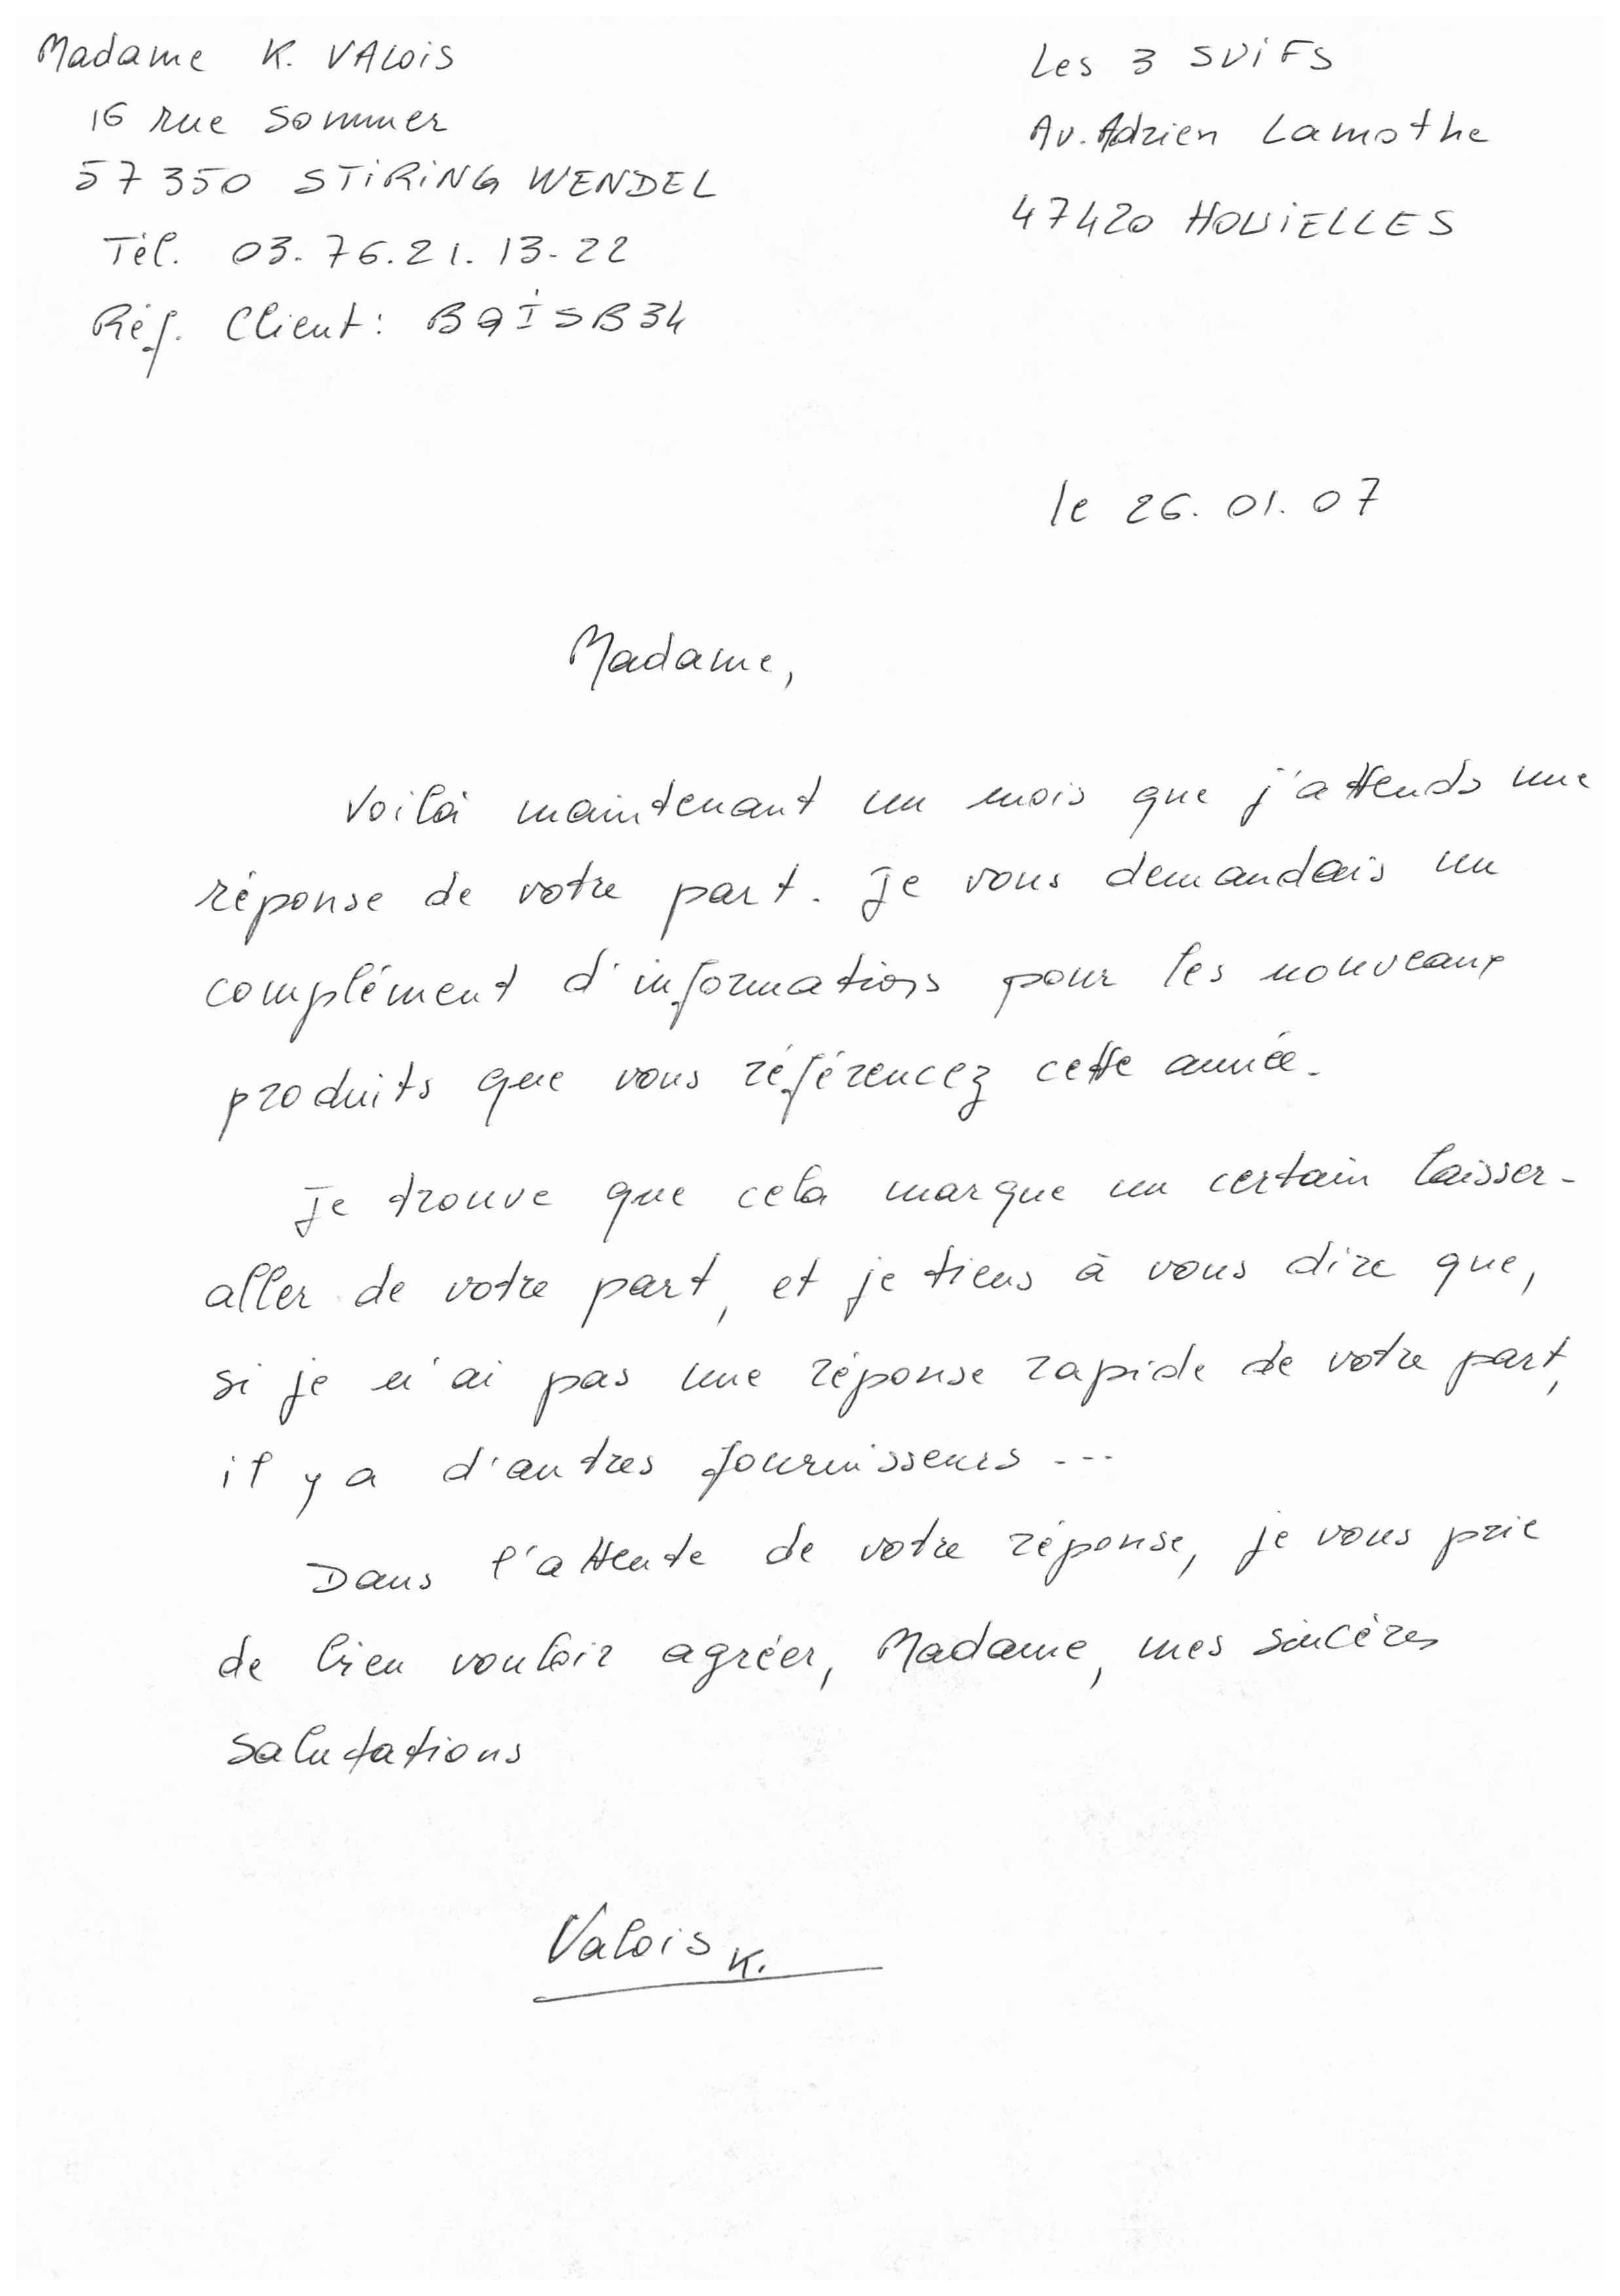 Madame K. VALOIS
16 rue Sommer
57350 STIRING WENDEL
Tél. 03.76.21.13.22
Réf. Client : BQISB34
Les 3 SUIFS
Av. Adrien Lamothe
47420 HOUIELLES
le 26.01.07
Madame,
Voilà maintenant un mois que j'attends une
réponse de votre part. Je vous demandais un
complément d'informations pour les nouveaux
produits que vous référencez cette année.
Je trouve que cela marque un certain laisser-
aller de votre part, et je tiens à vous dire que,
si je n'ai pas une réponse rapide de votre part,
il y a d'autres fournisseurs ...
Dans l'attente de votre réponse, je vous prie
de bien vouloir agréer, Madame, mes sincères
salutations
Valois K.